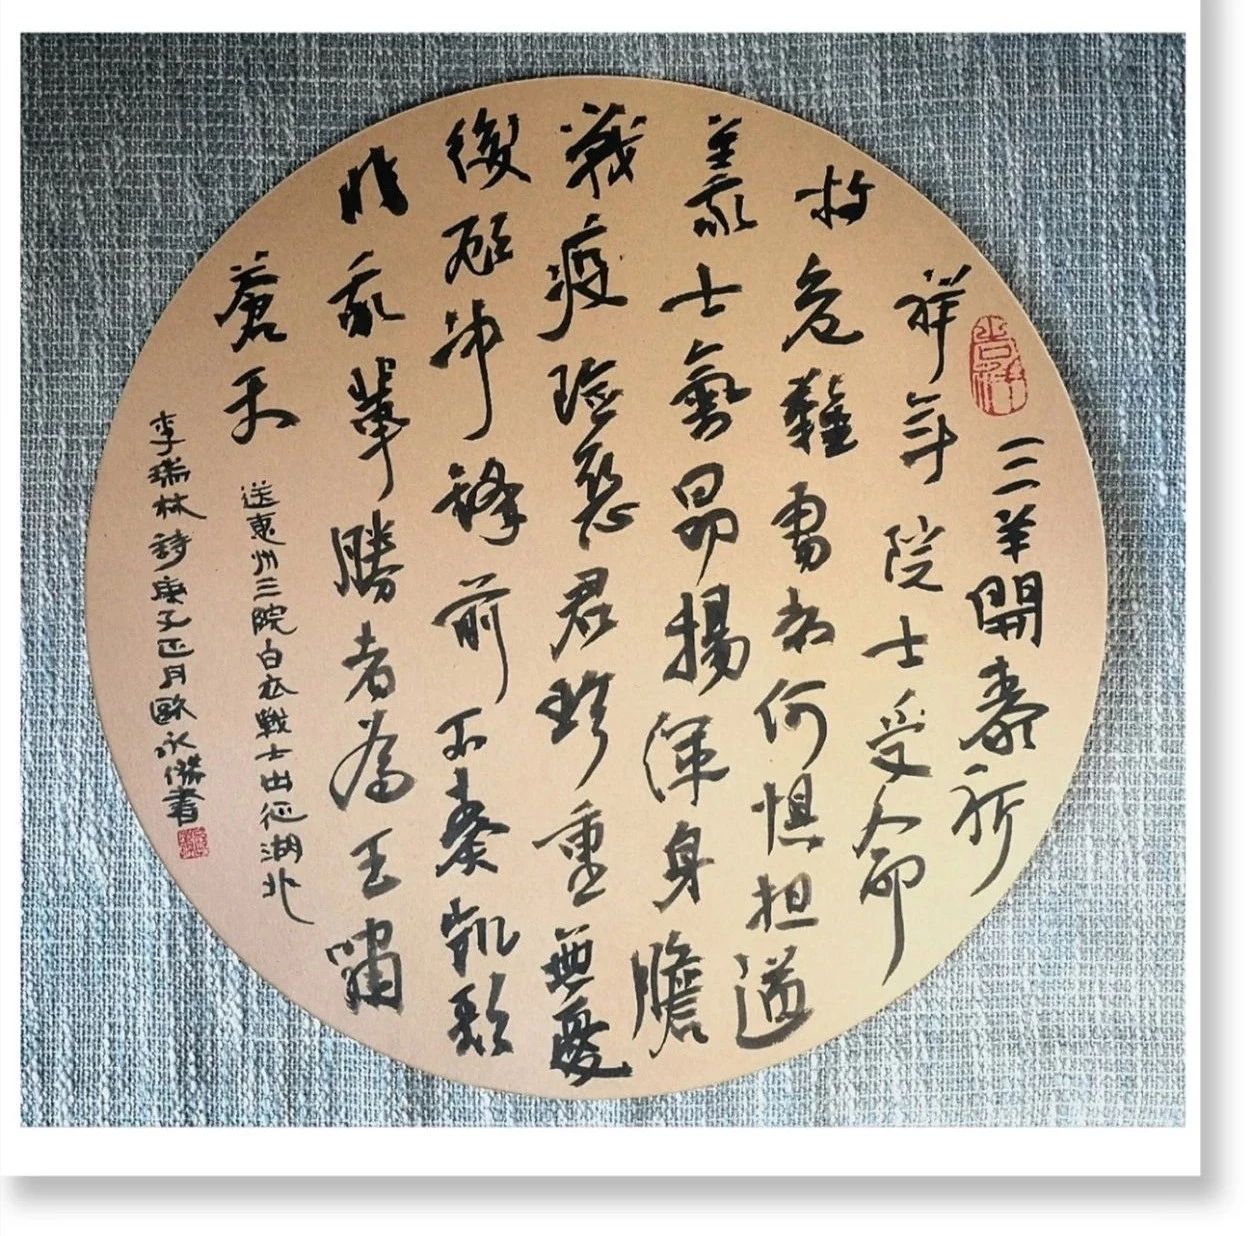 三羊開泰祈
祥年院士受命
救危難勇者何惧担道
義士氣昂揚渾身膽
戰疫險惡君珍重無憂
後顧冲鋒前不奏凱歌
非我輩勝者為王嘯
蒼天
送惠州三院白衣戰士出征湖北
李瑞林詩庚子正月歐永傑書